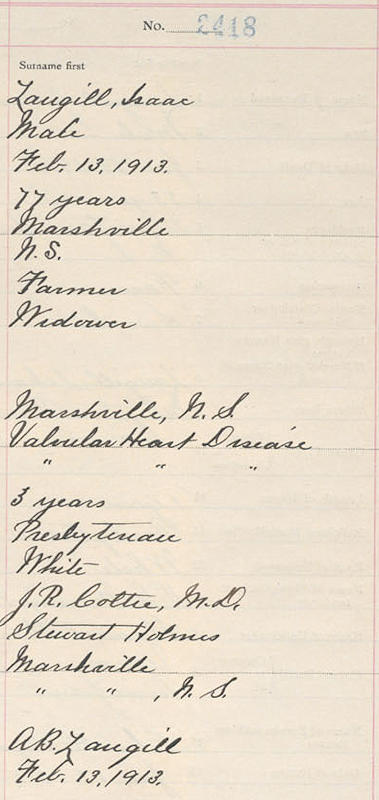 No. 2418
Surname first
Langill, Isaac
Male
Feb. 13, 1913.
77 years
Marshville
N.S.
Farmer
Widower
Marshville, N.S.
Valvular Heart Disease
" " "
3 years
Presbyterian
White
J.R. Collie, M.D.
Stewart Holmes
Marshville
" " , N.S.
A.B. Langill
Feb. 13, 1913.